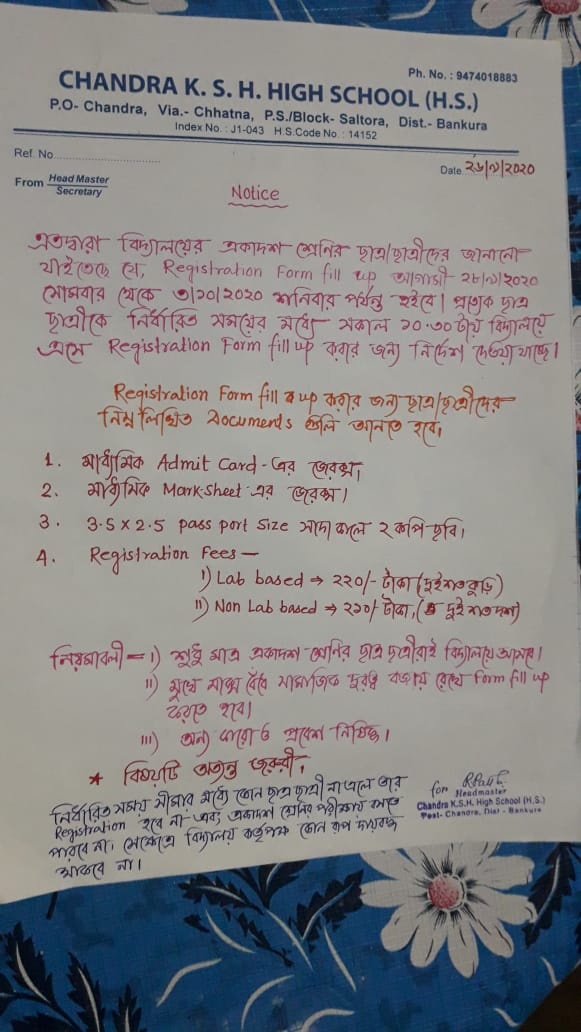 Ph. No. : 9474018883
CHANDRA K. S. H. HIGH SCHOOL (H.S.)
P.O- Chandra, Via.- Chhatna, P.S./Block- Saltora, Dist.- Bankura
Index No. : J1-043 H.S.Code No. : 14152
Ref. No.
Date 26/৯/2020
From Head Master
Secretary
Notice
এতদ্বারা বিদ্যালয়ের একাদশ শ্রেনির ছাত্র/ছাত্রীদের জানানো
যাইতেছে যে, Registration Form fill up আগামী ২৮/৯/2020
সোমবার থেকে ৩/১০/2020 শনিবার পর্যন্ত হইবে। প্রত্যেক ছাত্র
ছাত্রীকে নির্ধারিত সময়ের মধ্যে সকাল ১০.৩০ টায় বিদ্যালয়ে
এসে Registration Form fill up করার জন্য নির্দেশ দেওয়া যাচ্ছে।
Registration Form fill up করার জন্য ছাত্র/ছাত্রীদের
নিম্ন লিখিত Documents গুলি আনতে হবে।
1. মাধ্যমিক Admit Card-এর জেরক্স,
2. মাধ্যমিক Mark-sheet এর জেরক্স।
3. 3.5 x 2.5 pass port size সাদা কালো ২ কপি ছবি,
4. Registration Fees —
i) Lab based ⇒ ২২০/- টাকা (দুইশত কুড়ি)
ii) Non Lab based ⇒ ২১০/ টাকা, (দুইশত দশ)
নিয়মাবলী = i) শুধু মাত্র একাদশ শ্রেনির ছাত্র ছাত্রীরাই বিদ্যালয়ে আসবে।
ii) মুখে মাস্ক বেঁধে সামাজিক দূরত্ব বজায় রেখে Form fill up
করতে হবে।
iii) অন্য কারো ও প্রবেশ নিষিদ্ধ।
* বিষয়টি অত্যন্ত জরুরী,
নির্ধারিত সময় সীমার মধ্যে কোন ছাত্র ছাত্রী না এলে তার
Registration হবে না এবং একাদশ শ্রেনির পরীক্ষায় বসতে
পারবে না, সেক্ষেত্রে বিদ্যালয় কর্তৃপক্ষ কোন রূপ দায়বদ্ধ
থাকবে না।
for
Headmaster
Chandra K.S.H. High School (H.S.)
Post- Chandra, Dist - Bankura